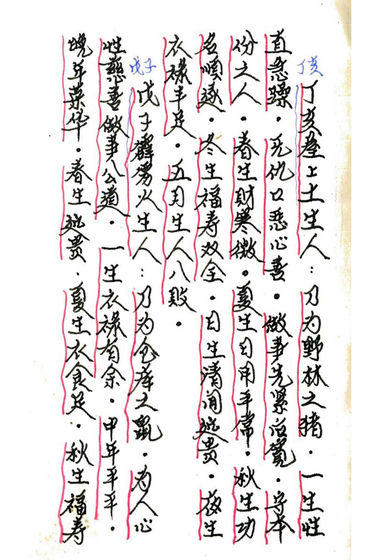 丁亥
丁亥屋上土生人：乃为野林之猪．一生性
直急躁．无仇口恶心善．做事先紧后宽．守本
份之人．春生财寒微．夏生自用平常．秋生功
名顺遂．冬生福寿双全．日生清闲贵．夜生
衣禄丰足．五月生人八败．
戊子
戊子霹雳火生人：乃为仓库之鼠．为人心
性慈善做事公道．一生衣禄有余．中年平平．
晚年荣华．春生贵．夏生衣食足．秋生福寿